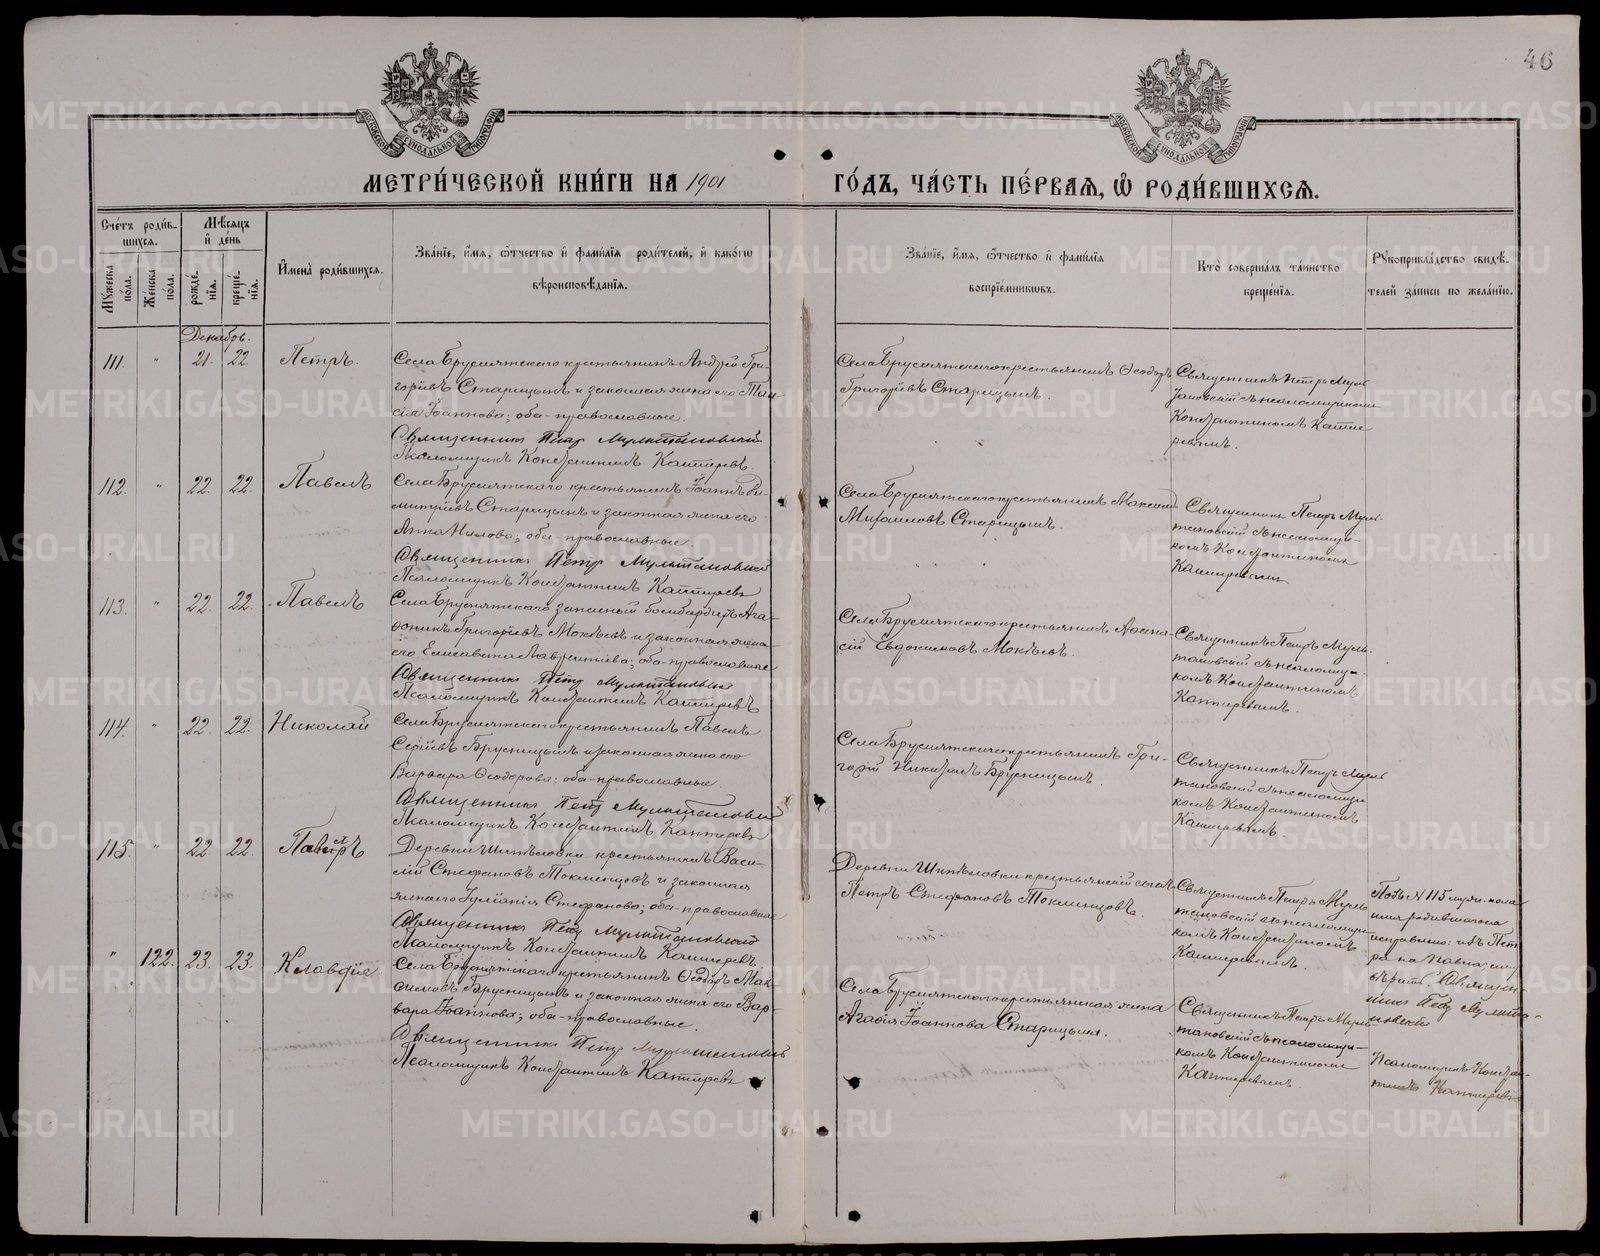 46
МОСКОВСКОЙ СѴНОДАЛЬНОЙ ТИПОГРАФІИ
МОСКОВСКОЙ СѴНОДАЛЬНОЙ ТИПОГРАФІИ
МЕТРИ́ЧЕСКОЙ КНИ́ГИ НА 1901 ГО́ДЪ, ЧА́СТЬ ПЕ́РВАѦ, Ѽ РОДИ́ВШИХСѦ.
Сче́тъ роди́вшихся.
Мѣ́сяцъ и҆ де́нь
Мꙋ́жеска по́ла.
Же́нска по́ла.
рожде́нія.
креще́нія.
И҆мена̀ роди́вшихся.
Зва́ніе, и҆́мя, ѻ҆́тчество и҆ фами́лія роди́телей, и҆ како́гѡ вѣроисповѣ́данія.
Зва́ніе, и҆́мя, ѻ҆́тчество и҆ фами́лія воспріе́мникѡвъ.
Кто̀ соверша́лъ та́инство креще́нія.
Рꙋкоприкла́дство свидѣ́телей за́писи по жела́нію.
Декабрь.
111. " 21. 22. Петръ.
Села Брусятскаго крестьянинъ Андрей Гри-
горьевъ Старицынъ и законная жена его Таи-
сія Іоаннова; оба православные.
Священникъ Петр Мультановский
Псаломщикъ Константинъ Каптеревъ.
Села Брусятскаго крестьянинъ Ѳеодоръ
Григорьевъ Старицынъ.
Священникъ Петръ Муль-
тановскій съ псаломщикомъ
Константиномъ Капте-
ревымъ.
112. " 22. 22. Павелъ
Села Брусятскаго крестьянинъ Іоаннъ Ди-
митріевъ Старицынъ и законная жена его
Анна Нилова; оба православные.
Священникъ Петр Мультановский
Псаломщикъ Константинъ Каптеревъ
Села Брусятскаго крестьянинъ Максимъ
Михаиловъ Старицынъ.
Священникъ Петръ Муль-
тановскій съ псаломщи-
комъ Константиномъ
Каптеревымъ
113. " 22. 22. Павелъ
Села Брусятскаго запасный бомбардиръ Ага-
фоникъ Григорьевъ Мокѣевъ и законная жена
его Елисавета Лаврентіева; оба православные
Священникъ Петр Мультановский
Псаломщикъ Константинъ Каптеревъ
Села Брусятскаго крестьянинъ Аѳана-
сій Евдокимовъ Мокѣевъ.
Священникъ Петръ Муль-
тановскій съ псаломщи-
комъ Константиномъ
Каптеревымъ.
114. " 22. 22. Николай
Села Брусятскаго крестьянинъ Павелъ
Сергіевъ Брусницынъ и законная жена его
Варвара Ѳеодорова; оба православные.
Священникъ Петр Мультановский
Псаломщикъ Константинъ Каптеревъ
Села Брусятскаго крестьянинъ Гри-
горій Брусницынъ.
Священникъ Петръ Муль-
тановскій съ псаломщи-
комъ Константиномъ
Каптеревымъ.
115. " 22 22. Павелъ
Деревни крестьянинъ Васи-
лій Стефановъ Токманцовъ и законная
жена его Іуліанія Стефанова; оба православные
Священникъ Петр Мультановский
Псаломщикъ Константинъ Каптеревъ.
Деревни крестьянскій сынъ
Петръ Стефановъ Токманцовъ.
Священникъ Петръ Муль-
тановскій съ псаломщи-
комъ Константиномъ
Каптеревымъ.
Подъ № 115 муж. пола
имя родившагося
исправлено: изъ Пет-
ра на Павла, сему
вѣрить. Священ-
никъ Петр Мульта-
новский
Псаломщикъ Констан-
тинъ Каптеревъ
" 122. 23. 23. Клавдія
Села Брусятскаго крестьянинъ Ѳеодоръ Мак-
симовъ Брусницынъ и законная жена его Вар-
вара Іоаннова; оба православные.
Священникъ Петр Мультановский
Псаломщикъ Константинъ Каптеревъ
Села Брусятскаго крестьянская жена
Агафія Іоаннова Старицына.
Священникъ Петръ Муль-
тановскій съ псаломщи-
комъ Константиномъ
Каптеревымъ.
METRIKI.GASO-URAL.RU